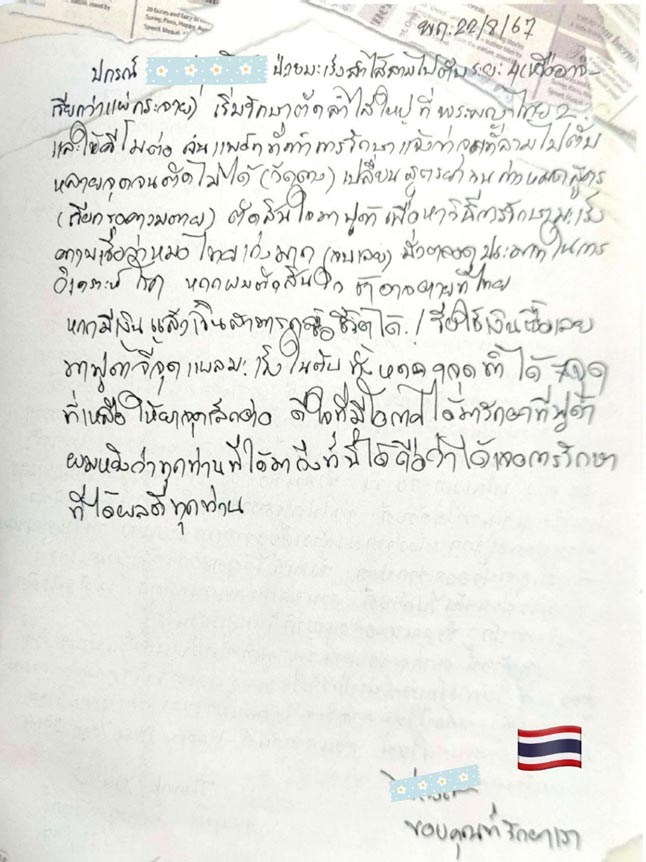 พฤ. 22/8/67
ปกรณ์ ป่วยมะเร็งลำไส้ลามไปตับระยะ 4 (หรืออาจ
เรียกว่าแพร่กระจาย) เริ่มรักษาตัดลำไส้ใหญ่ ที่ พระพญาไทย 2
และให้คีโมต่อ จนแพทย์ที่ทำการรักษาแจ้งว่าจุดที่ลามไปตับ
หลายจุดจนตัดไม่ได้ เปลี่ยนสูตรยา จนหมดสูตร
(เรียกรอความตาย) ตัดสินใจมาฟูด้า เพื่อหาวิธีการรักษามะเร็ง
ความเชื่อว่าหมอไทยเก่งมาก ประมาทในการ
วิเคราะห์โรค หากผมตัดสินใจช้าอาจตายที่ไทย
หากมีเงิน แล้วเงินสามารถซื้อชีวิตได้ ! ใช้เงินซื้อเลย
มาฟูด้าจี้จุดแผลมะเร็งในตับ ทั้งหมด 9 จุด ทำได้ 7 จุด
ที่เหลือให้ยา ดีใจที่มีโอกาสได้มารักษาที่ฟูด้า
ผมหวังว่าทุกท่านที่ได้มาถึงที่นี่ได้ถือว่าได้เจอการรักษา
ที่ได้ผลดีทุกท่าน
ขอบคุณที่รักษาเรา